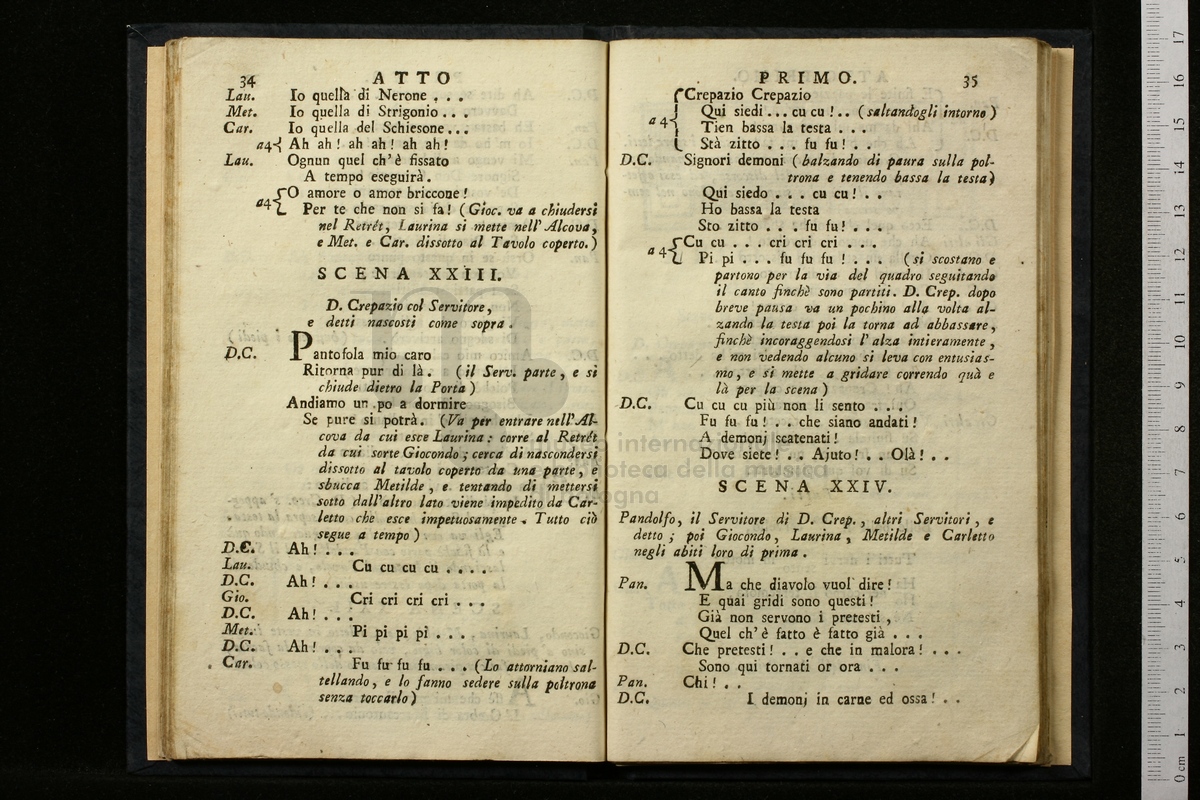 34 ATTO
Lau. Io quella di Nerone . . .
Met. Io quella di Strigonio . . .
Car. Io quella del Schiesone...
a4 Ah ah! ah ah! ah ah!
Lau. Ognun quel ch'è fissato
A tempo eseguirà.
a4 O amore o amor briccone!
Per te che non si fa! (Gioc. va a chiudersi
nel Retrét, Laurina si mette nell'Alcova,
e Met. e Car. dissotto al Tavolo coperto.)
SCENA XXIII.
D. Crepazio col Servitore,
e detti nascosti come sopra.
D.C. Pantofola mio caro
Ritorna pur di là. (il Serv. parte, e si
chiude dietro la Porta)
Andiamo un po a dormire
Se pure si potrà. (Va per entrare nell'Al-
cova da cui esce Laurina: corre al Retrét
da cui sorte Giocondo; cerca di nascondersi
dissotto al tavolo coperto da una parte, e
sbucca Metilde, e tentando di mettersi
sotto dall'altro lato viene impedito da Car-
letto che esce impetuosamente. Tutto ciò
segue a tempo)
D.C. Ah! . . .
Lau. Cu cu cu cu . . . .
D.C. Ah! . . .
Gio. Cri cri cri cri . . .
D.C. Ah! . . .
Met. Pi pi pi pi . . .
D.C. Ah! . . .
Car. Fu fu fu fu . . . (Lo attorniano sal-
tellando, e lo fanno sedere sulla poltrona
senza toccarlo)
PRIMO. 35
a4 Crepazio Crepazio
Qui siedi ... cu cu !.. (saltandogli intorno)
Tien bassa la testa . . .
Stà zitto . . . fu fu! . .
D.C. Signori demoni (balzando di paura sulla pol-
trona e tenendo bassa la testa)
Qui siedo . . . cu cu! . .
Ho bassa la testa
Sto zitto . . . fu fu! . . .
a4 Cu cu . . . cri cri cri . . .
Pi pi . . . fu fu fu ! . . . (si scostano e
partono per la via del quadro seguitando
il canto finchè sono partiti. D. Crep. dopo
breve pausa va un pochino alla volta al-
zando la testa poi la torna ad abbassare,
finchè incoraggendosi l'alza intieramente,
e non vedendo alcuno si leva con entusias-
mo, e si mette a gridare correndo quà e
là per la scena)
D.C. Cu cu cu più non li sento . . .
Fu fu fu! . . che siano andati!
A demonj scatenati!
Dove siete! . . Ajuto! . . Olà! . .
SCENA XXIV.
Pandolfo, il Servitore di D. Crep., altri Servitori, e
detto; poi Giocondo, Laurina, Metilde e Carletto
negli abiti loro di prima.
Pan. Ma che diavolo vuol dire!
E quai gridi sono questi!
Già non servono i pretesti,
Quel ch'è fatto è fatto già . . .
D.C. Che pretesti! . . e che in malora! . . .
Sono qui tornati or ora . . .
Pan. Chi! . .
D.C. I demonj in carne ed ossa! . .
museo internazionale
biblioteca della musica
di bologna
0 cm 1 2 3 4 5 6 7 8 9 10 11 12 13 14 15 16 17